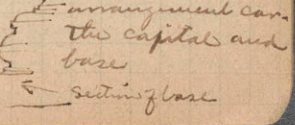 arrangement car-
the capital and
base
section of base